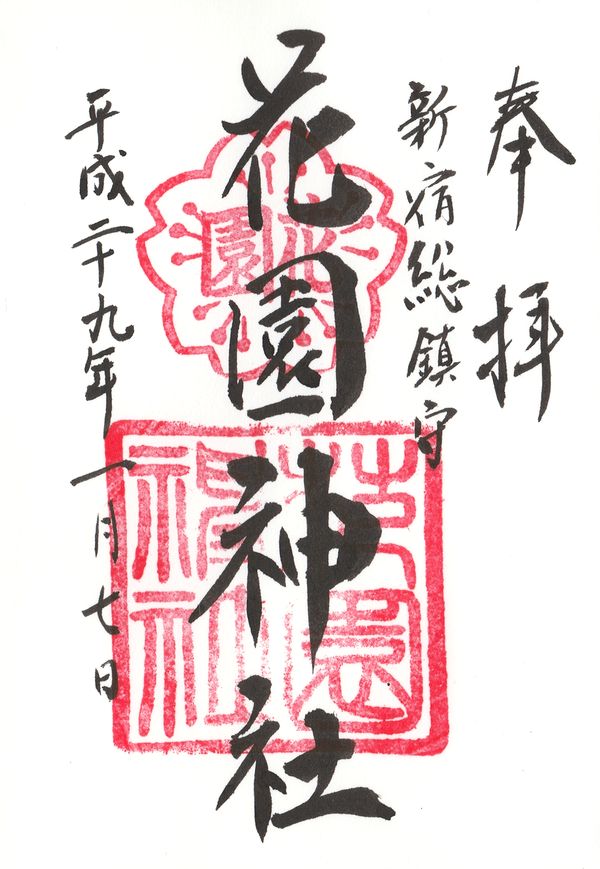 奉拝
新宿総鎮守
花園神社
平成二十九年一月七日
花園
花園神社